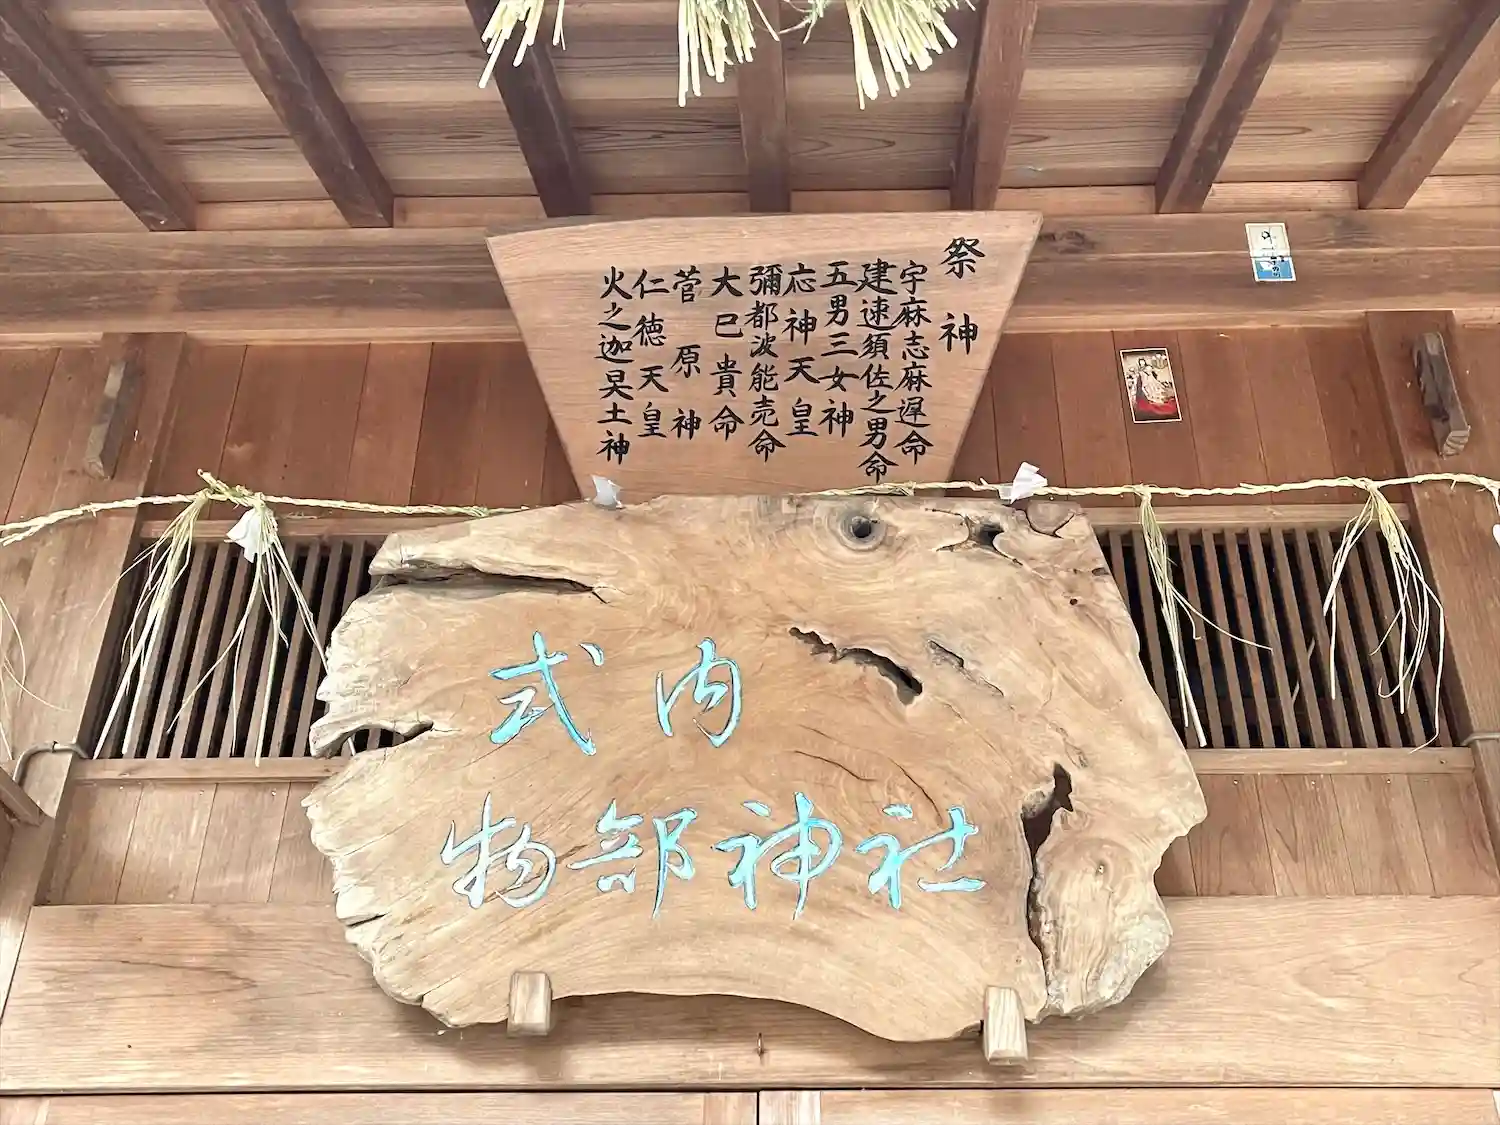 祭神
宇麻志麻遅命
建速須佐之男命
五男三女神
応神天皇
彌都波能売命
大巳貴命
菅原神
仁徳天皇
火之迦具土神
式内
物部神社